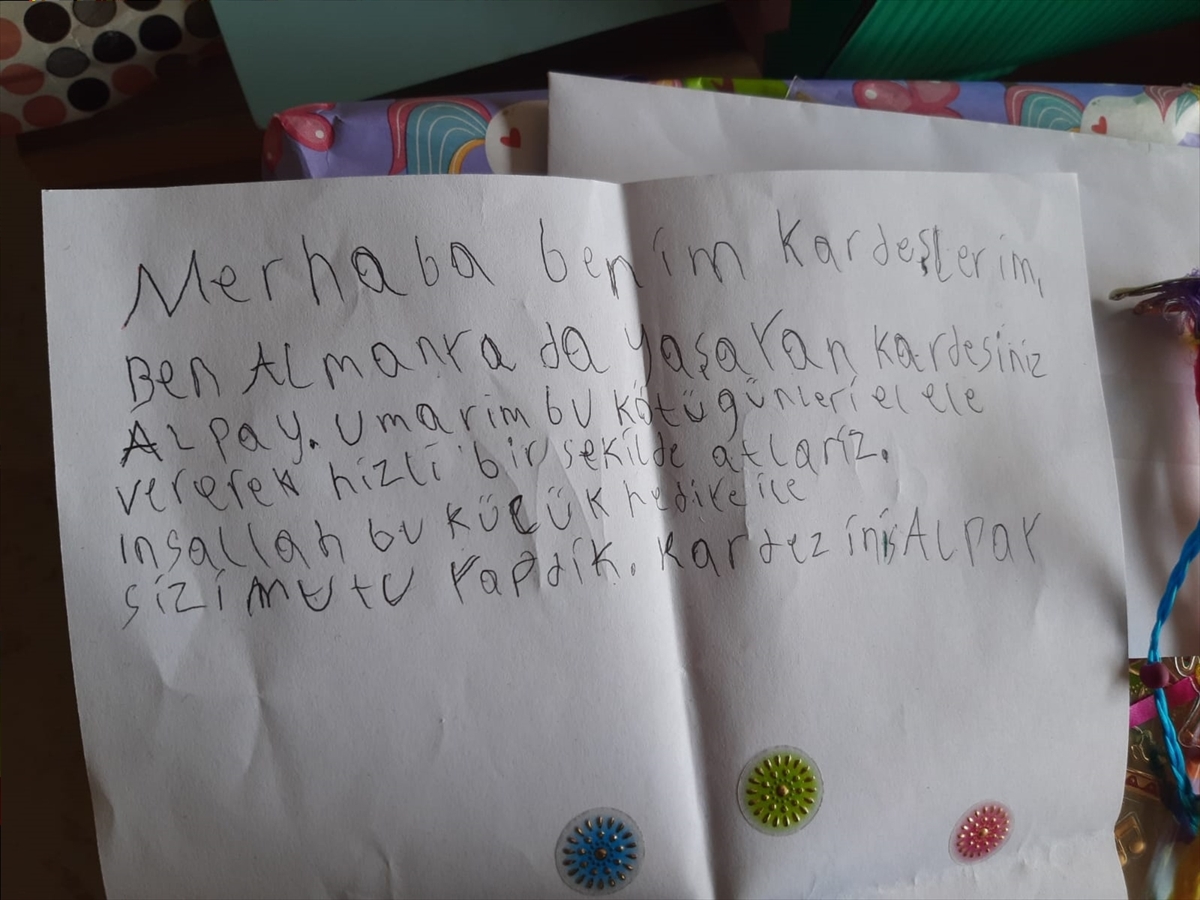 Merhaba benim Kardeşlerim,
Ben ALmanya da yaşayan kardesiniz
ALpay. umarim bu kötü günleri el ele
vererek hizli bir sekilde atlariz.
insallah bu küçük hediye ile
sizi mutu yapdik. kardeziniz ALpay